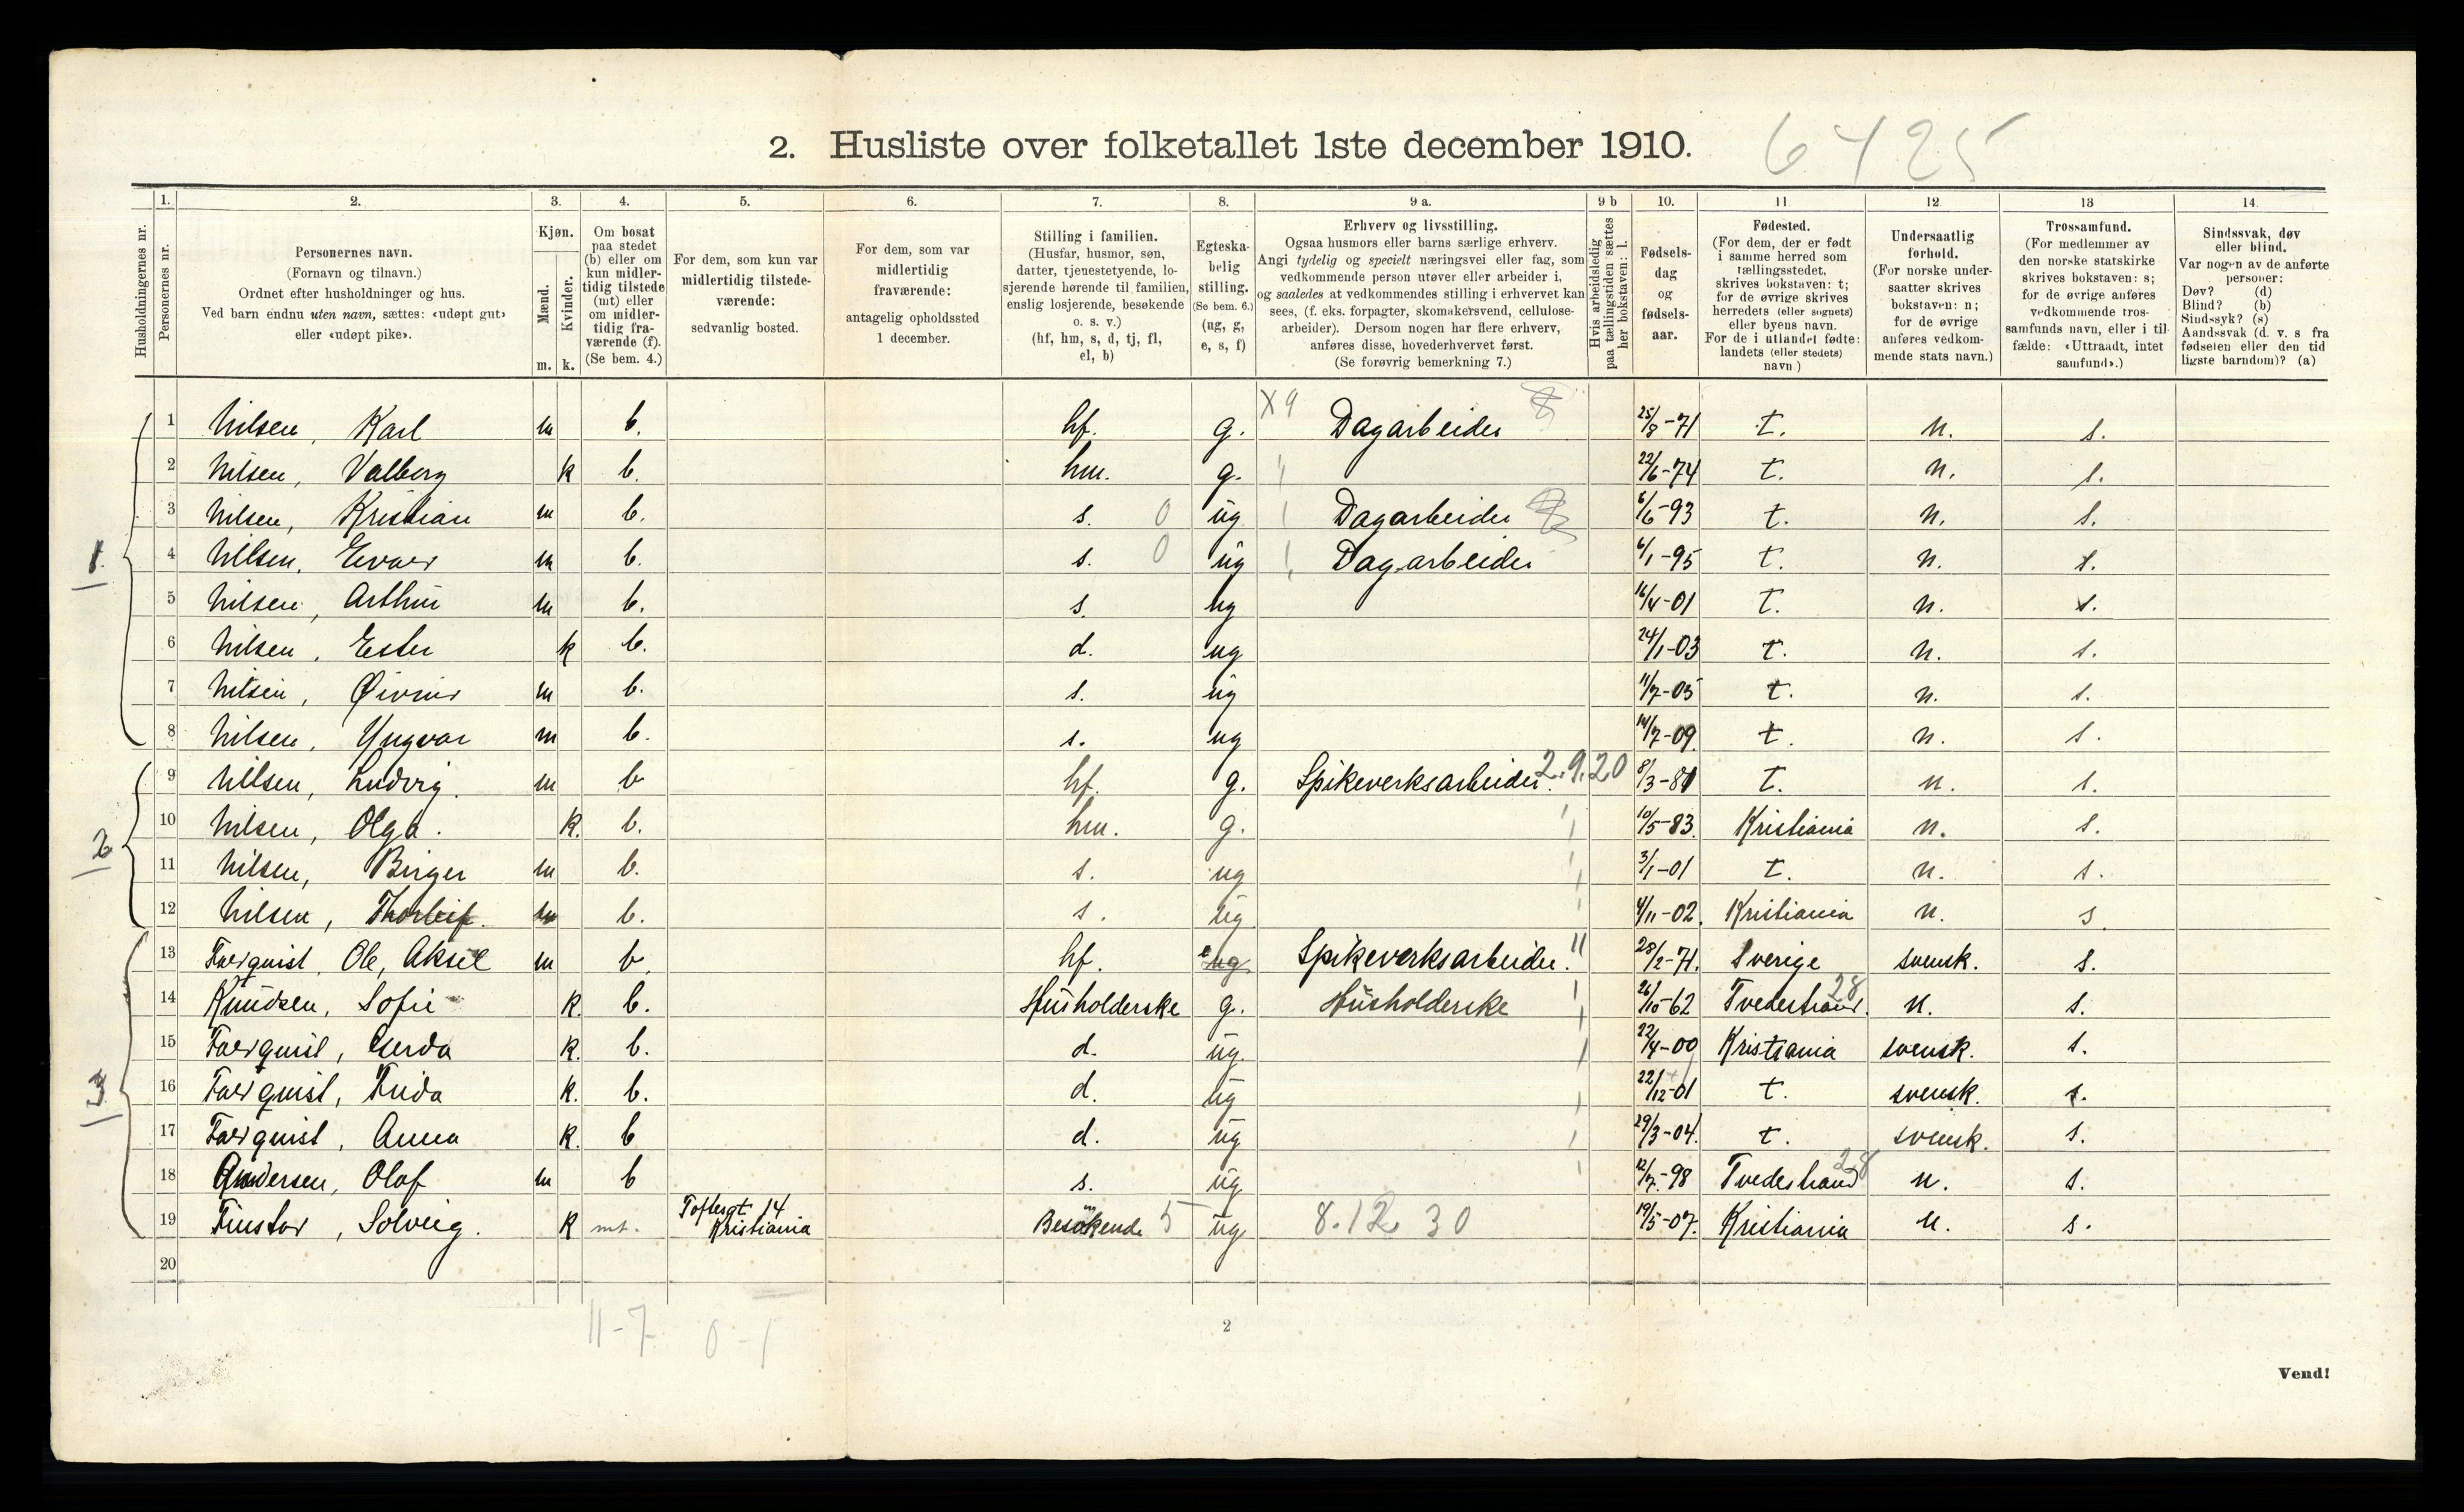 2. Husliste over folketallet 1ste december 1910. 6425
Husholdningernes nr.
1. Personernes nr.
2. Personernes navn. (Fornavn og tilnavn.) Ordnet efter husholdninger og hus. Ved barn endnu uten navn, sættes: «udøpt gut» eller «udøpt pike».
3. Kjøn. Mænd. m. Kvinder. k.
4. Om bosat paa stedet (b) eller om kun midlertidig tilstede (mt) eller om midlertidig fraværende (f). (Se bem. 4.)
5. For dem, som kun var midlertidig tilstedeværende: sedvanlig bosted.
6. For dem, som var midlertidig fraværende: antagelig opholdssted 1 december.
7. Stilling i familien. (Husfar, husmor, søn, datter, tjenestetyende, losjerende hørende til familien, enslig losjerende, besøkende o. s. v.) (hf, hm, s, d, tj, fl, el, b)
8. Egteskabelig stilling. (Se bem. 6.) (ug, g, e, s, f)
9 a. Erhverv og livsstilling. Ogsaa husmors eller barns særlige erhverv. Angi tydelig og specielt næringsvei eller fag, som vedkommende person utøver eller arbeider i, og saaledes at vedkommendes stilling i erhvervet kan sees, (f. eks. forpagter, skomakersvend, cellulosearbeider). Dersom nogen har flere erhverv, anføres disse, hovederhvervet først. (Se forøvrig bemerkning 7.)
9 b Hvis arbeidsledig paa tællingstiden sættes her bokstaven: l.
10. Fødselsdag og fødselsaar.
11. Fødested. (For dem, der er født i samme herred som tællingsstedet, skrives bokstaven: t; for de øvrige skrives herredets (eller sognets) eller byens navn. For de i utlandet fødte: landets (eller stedets) navn )
12. Undersaatlig forhold. (For norske undersaatter skrives bokstaven: n; for de øvrige anføres vedkommende stats navn.)
13 Trossamfund. (For medlemmer av den norske statskirke skrives bokstaven: s; for de øvrige anføres vedkommende trossamfunds navn, eller i tilfælde: «Uttraadt, intet samfund».)
14. Sindssvak, døv eller blind. Var nogen av de anførte personer: Døv? (d) Blind? (b) Sindssyk? (s) Aandssvak (d. v. s fra fødselen eller den tidligste barndom)? (a)
1. 1 Nilsen, Karl m b. hf. g. X9 Dagarbeider 25/8-71 t. n. s.
2 Nilsen, Valborg k b. hm. g. 22/6-74 t. n. s.
3 Nilsen, Kristian m b. s. 0 ug Dagarbeider 6/6-93 t. n. s.
4 Nilsen, Eivar m b. s. 0 ug Dagarbeider 6/1-95 t. n. s.
5 Nilsen, Arthur m b. s. ug 16/4-01 t. n. s.
6 Nilsen, Ester k b. d. ug 24/1-03 t. n. s.
7 Nilsen, Øivind m b. s. ug 11/7-05 t. n. s.
8 Nilsen, Yngvar m b. s. ug 14/7-09. t. n. s.
2 9 Nilsen, Ludvig. m b hf. g. Spikeverksarbeider. 2.9.20 8/3-81 t. n. s.
10 Nilsen, Olga. k. b. hm. g. 10/5-83. Kristiania n. s.
11 Nilsen, Birger m b. s. ug 3/1-01 t. n. s.
12 Nilsen, Thorleif. m b. s. ug 4/11-02. Kristiania n. s
3 13 Færquist, Ole, Aksel m b. hf. e ug Spikeverksarbeider. 28/2-71. Sverige svensk. s.
14 Knudsen, Sofie k. b. Husholderske g. Husholderske 26/10-62 Tvedestrand. 28 n. s.
15 Færquist, Gerda k. b. d. ug. 22/4-00 Kristiania svensk. s.
16 Færquist, Frida k. b. d. ug 22/12-01 t. svensk. s.
17 Færquist, Anna k. b d. ug 29/3-04. t. svensk. s.
18 Andersen, Olaf m b s. ug 12/7-98 Tvedestrand 28 n. s.
19 Finstad, Solveig. k mt. Toftesgt. 14 Kristiania Besøkende 5 ug 8.12 30 19/5-07. Kristiania n. s.
20
11-7 0-1
2
Vend!